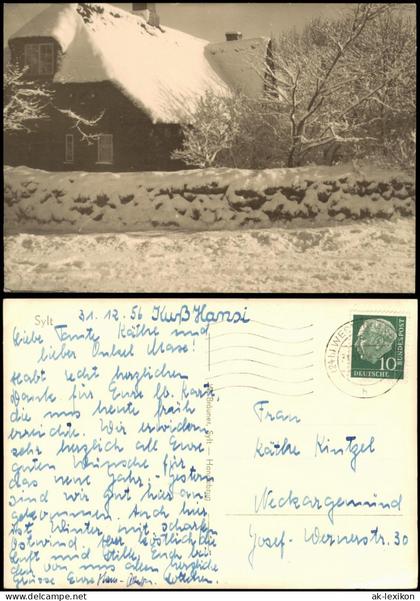 Sylt
31.12.56 Kuß Hansi
Liebe Tante Käthe und
lieber Onkel Mase!
Habt recht herzlichen
Dank für Eure lb. Karte
die uns heute früh
erreichte. Wir erwidern
sehr herzlich all Eure
guten Wünsche für
das neue Jahr. Gestern
sind wir gut hier an-
gekommen. Auch hier
ist Winter mit scharfem
Ostwind. Aber köstliche
Luft und Stille. Euch beiden
von uns allen herzliche
Grüsse Eure
h
DEUTSCHE
BUNDESPOST
10
Frau
Käthe Kintzel
Neckargemünd
Josef-Wernerstr. 30
ak-lexikon.de